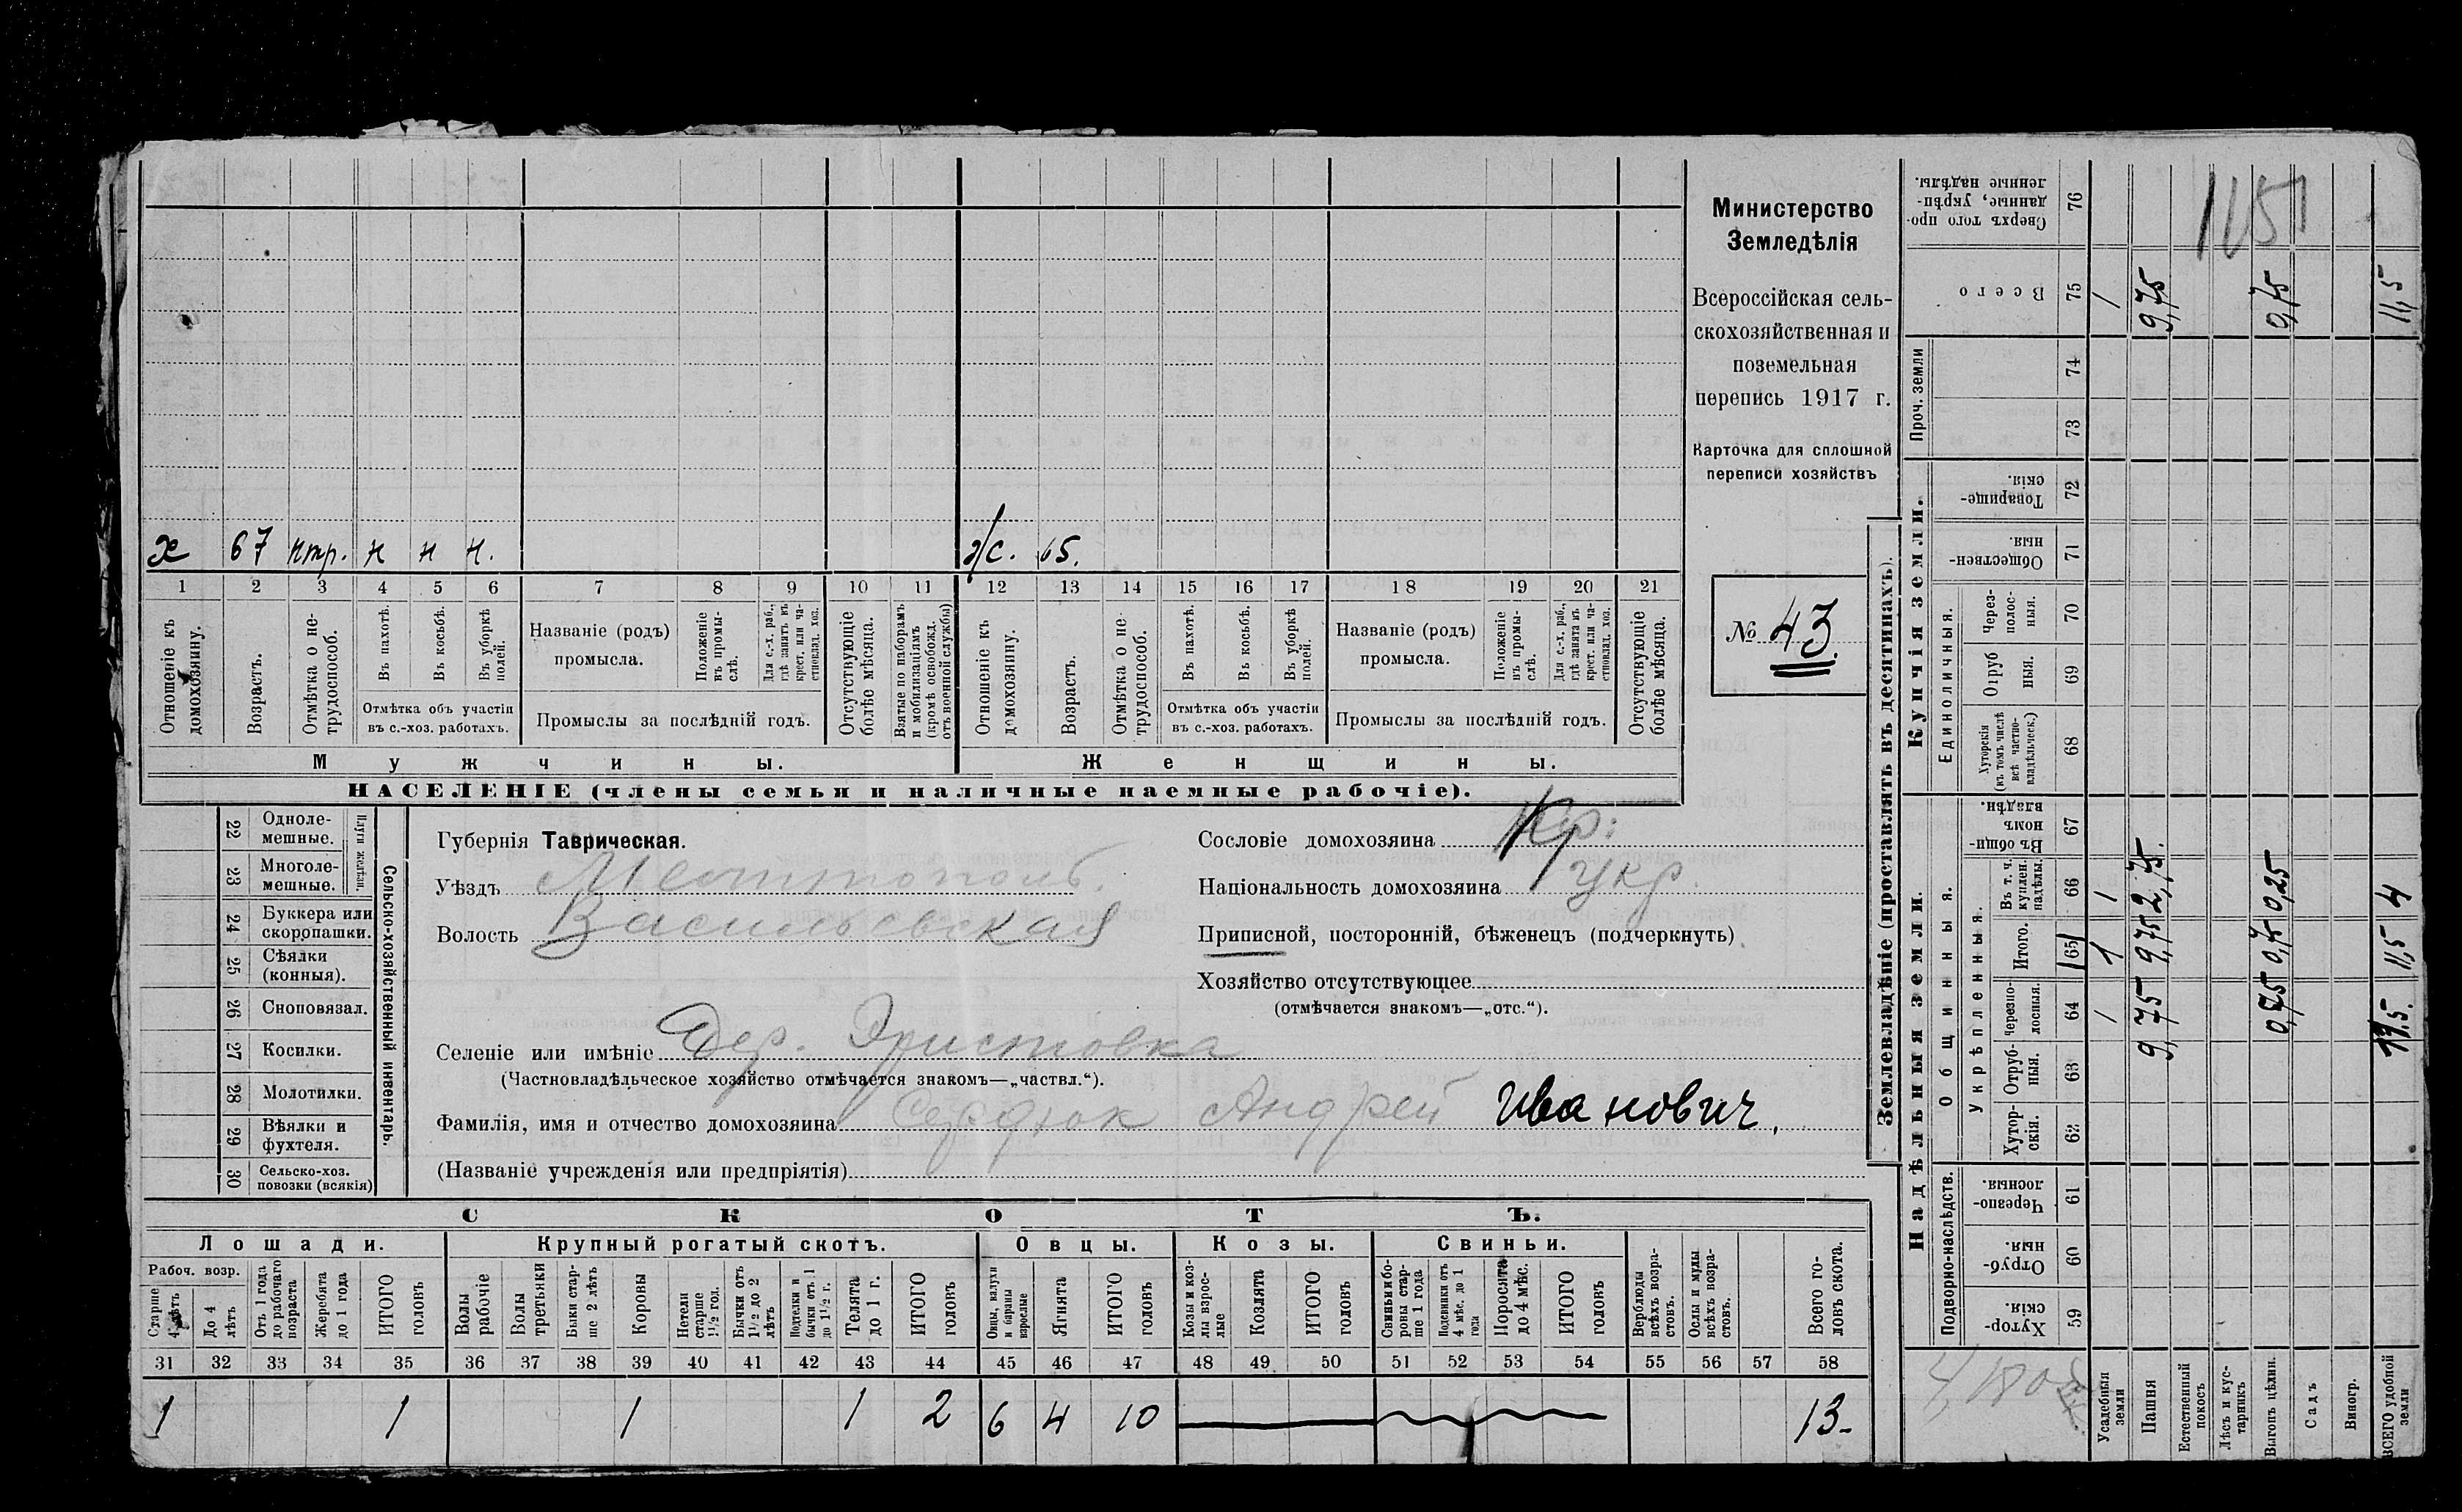 х 67 нтр. н н н. ж/с. 65.
1 2 3 4 5 6 7 8 9 10 11 12 13 14 15 16 17 18 19 20 21
Отношеніе къ домохозяину.
Возрастъ.
Отмѣтка о не-трудоспособ.
Въ пахотѣ.
Въ косьбѣ.
Въ уборкѣ полей.
Отмѣтка объ участіи
въ с.-хоз. работахъ.
Названіе (родъ)
промысла.
Положеніе въ промы-слѣ.
Для с.-х. раб., гдѣ занятъ въ крест. или ча-стновлад. хоз.
Промыслы за послѣдній годъ.
Отсутствующіе болѣе мѣсяца.
Взятые по наборамъ и мобилизаціямъ (кромѣ освобожд. отъ военной службы)
Отношеніе къ домохозяину.
Возрастъ.
Отмѣтка о не-трудоспособ.
Въ пахотѣ.
Въ косьбѣ.
Въ уборкѣ полей.
Отмѣтка объ участіи
въ с.-хоз. работахъ.
Названіе (родъ)
промысла.
Положеніе въ промы-слѣ.
Для с.-х. раб., гдѣ занята въ крест. или ча-стновлад. хоз.
Промыслы за послѣдній годъ.
Отсутствующіе болѣе мѣсяца.
Мужчины.
Женщины.
НАСЕЛЕНІЕ (члены семьи и наличные наемные рабочіе).
Министерство
Земледѣлія
Всероссійская сель-
скохозяйственная и
поземельная
перепись 1917 г.
Карточка для сплошной
переписи хозяйствъ
№ 43.
22 Одноле-мешные.
23 Многоле-мешные.
Плуги желѣзн.
24 Буккера или скоропашки.
25 Сѣялки (конныя).
26 Сноповязал.
27 Косилки.
28 Молотилки.
29 Вѣялки и фухтеля.
30 Сельско-хоз. повозки (всякія)
Сельско-хозяйственный инвентарь.
Губернія Таврическая.
Уѣздъ Мелитополь.
Волость Васильевская
Селеніе или имѣніе Дер. Эристовка
(Частновладѣльческое хозяйство отмѣчается знакомъ—„частвл.“).
Фамилія, имя и отчество домохозяина Сердюк Андрей Иванович.
(Названіе учрежденія или предпріятія)
Сословіе домохозяина Кр:
Національность домохозяина укр.
Приписной, посторонній, бѣженецъ (подчеркнуть)
Хозяйство отсутствующее
(отмѣчается знакомъ—„отс.“).
СКОТЪ.
Лошади. Крупный рогатый скотъ. Овцы. Козы. Свиньи.
Рабоч. возр.
Старше 4 лѣтъ
До 4 лѣтъ
Отъ 1 года до рабочаго возраста
Жеребята до 1 года
ИТОГО головъ
Волы рабочіе
Волы третьяки
Быки стар-ше 2 лѣтъ
Коровы
Нетели старше 1½ год.
Бычки отъ 1½ до 2 лѣтъ
Подтелки и бычки отъ 1 до 1½ г.
Телята до 1 г.
ИТОГО головъ
Овцы, валухи и бараны взрослые
Ягнята
ИТОГО головъ
Козы и коз-лы взрос-лые
Козлята
ИТОГО головъ
Свиньи и бо-ровы стар-ше 1 года
Подсвинки отъ 4 мѣс. до 1 года
Поросята до 4 мѣс.
ИТОГО головъ
Верблюды всѣхъ возра-стовъ.
Ослы и мулы всѣхъ возра-стовъ.
Всего го-ловъ скота.
31 32 33 34 35 36 37 38 39 40 41 42 43 44 45 46 47 48 49 50 51 52 53 54 55 56 57 58
1 1 1 1 2 6 4 10 13-
Землевладѣніе (проставлять въ десятинахъ).
Купчія земли.
Надѣльныя земли.
Сверхъ того про-данные, укрѣп-ленные надѣлы. 76
Всего 75 1 9,75 0,75 11,5
Проч. земли 74 73
Товарище-скія. 72
Обществен-ныя. 71
Единоличныя.
Через-полос-ныя. 70
Отруб ныя. 69
Хуторскія (въ томъ числѣ всѣ частно-владѣльческ.) 68
Въ общин-номъ владѣн. 67
Общинныя.
Укрѣпленныя.
Въ т. ч. куплен. надѣлы. 66 1 2,75. 0,25 4
Итого. 65 1 9,75 0,75 11,5
Черезпо-лосныя. 64 1 9,75 0,75 11,5.
Отруб-ныя. 63
Хутор-скія. 62
Подворно-наслѣдств.
Черезпо-лосныя. 61
Отруб-ныя. 60
Хутор-скія. 59
Усадебныя земли
Пашня
Естественный покосъ
Лѣсъ и кус-тарникъ
Выгонъ цѣлин.
Садъ
Виногр.
ВСЕГО удобной земли